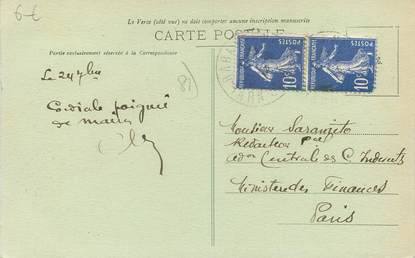 6-€
Le Verso (côté vue) ne doit comporter aucune inscription manuscrite
CARTE POSTALE
Partie exclusivement réservée à la Correspondance
POSTES
REPUBLIQUE FRANÇAISE
10c
POSTES
REPUBLIQUE FRANÇAISE
10c
81
Le 24 7bre
Cordiale poignée
de mains
Monsieur
Rédacteur Pal
Centrale des C. Indirectes
Ministère des Finances
Paris